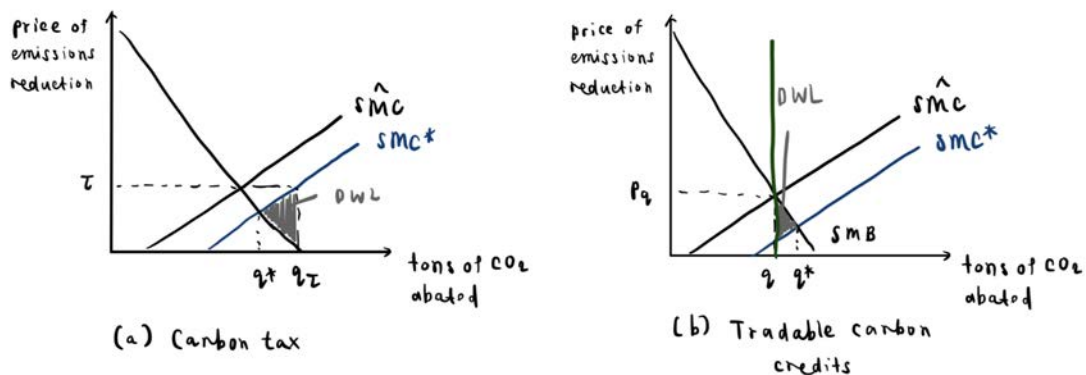 price of
emissions
reduction
SM̂C
SMC*
τ
DWL
q*
qτ
tons of CO₂
abated
(a) Carbon tax
price of
emissions
reduction
DWL
SM̂C
SMC*
Pq
SMB
q
q*
tons of CO₂
abated
(b) Tradable carbon
credits